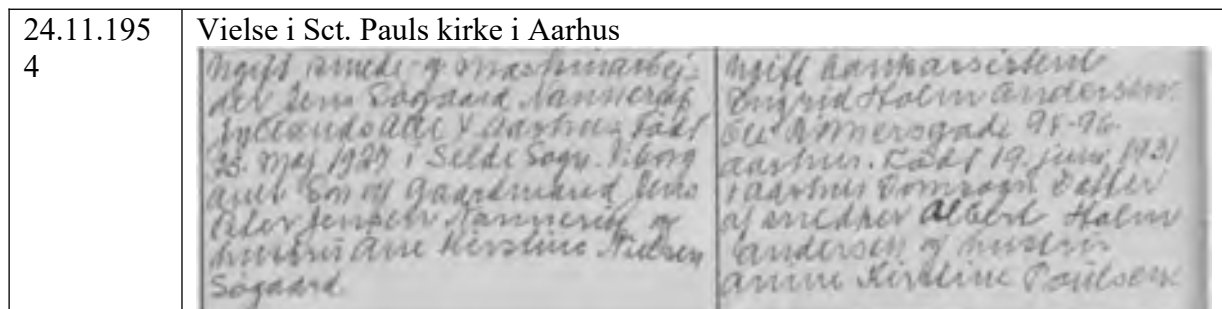 24.11.195
4
Vielse i Sct. Pauls kirke i Aarhus
Ugift smede- og maskinarbej-
der Jens Søgaard Nannerup
Jyllands Allé Aarhus. Født
25. Maj 1927 i Selde Sogn. Viborg
Amt Søn af Gaardmand Jens
Peter Jensen Nannerup og
hustru Ane Kirstine Nielsen
Søgaard
Ugift Bankassistent
Ingrid Holm Andersen.
94-96
Aarhus. Født 19. juni 1931
i Aarhus Domsogn Datter
af snedker Albert Holm
Andersen og hustru
Kirstine Poulsen